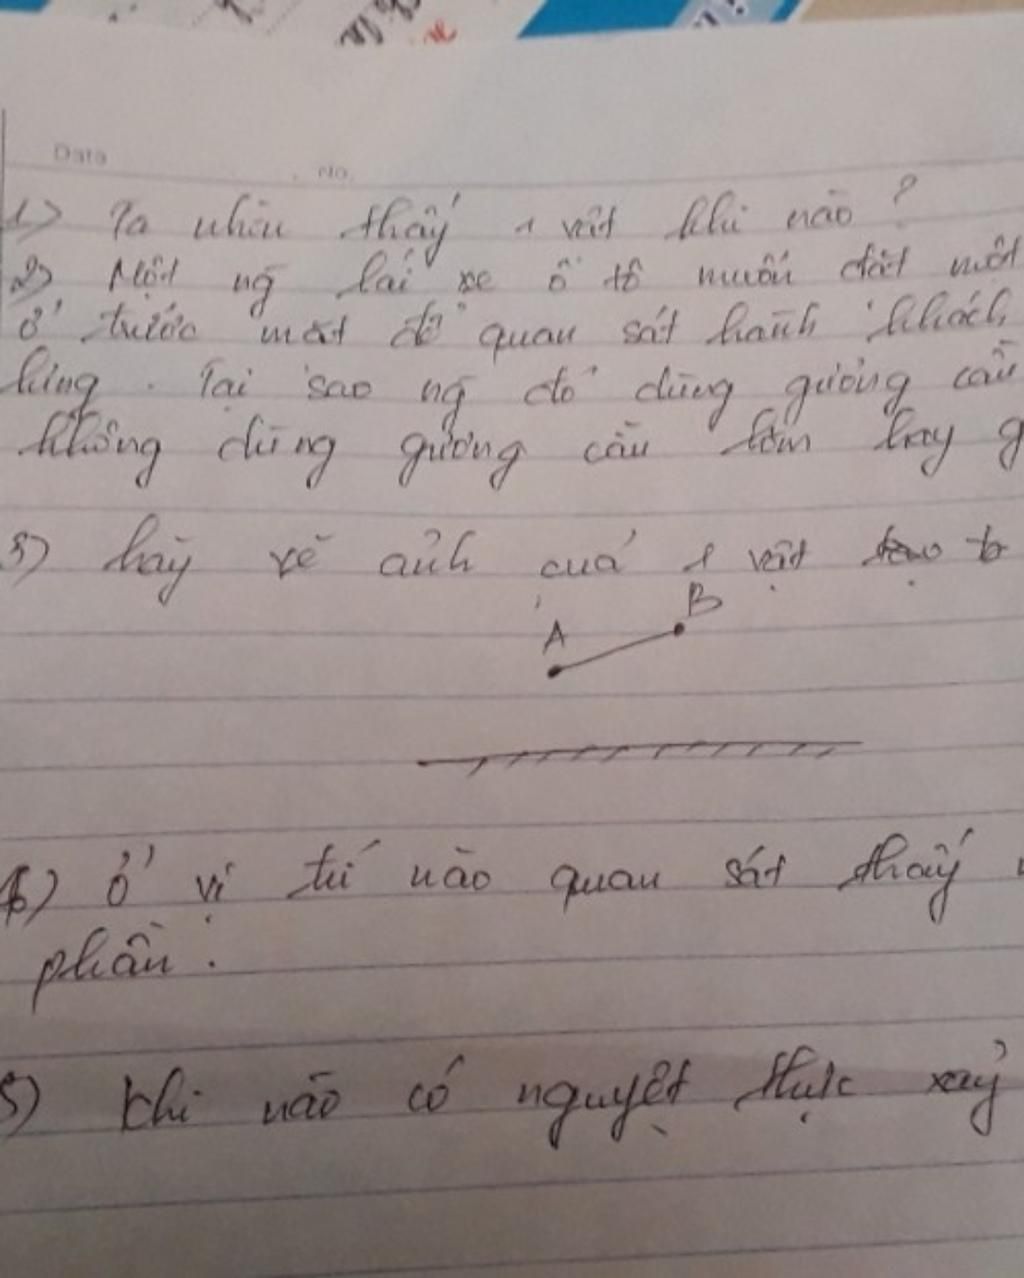 Data No.
1) Ta nhìn thấy 1 vật khi nào?
2) Một ng̃ lái xe ô tô muốn đặt một
ở trước mặt để quan sát hành khách
lưng. Tại sao ng̃ đó dùng gương cầu
không dùng gương cầu lõm hay g
3) hãy vẽ ảnh của 1 vật tạo
A B
4) ở vị trí nào quan sát thấy
phần.
5) khi nào có nguyệt thực xảy